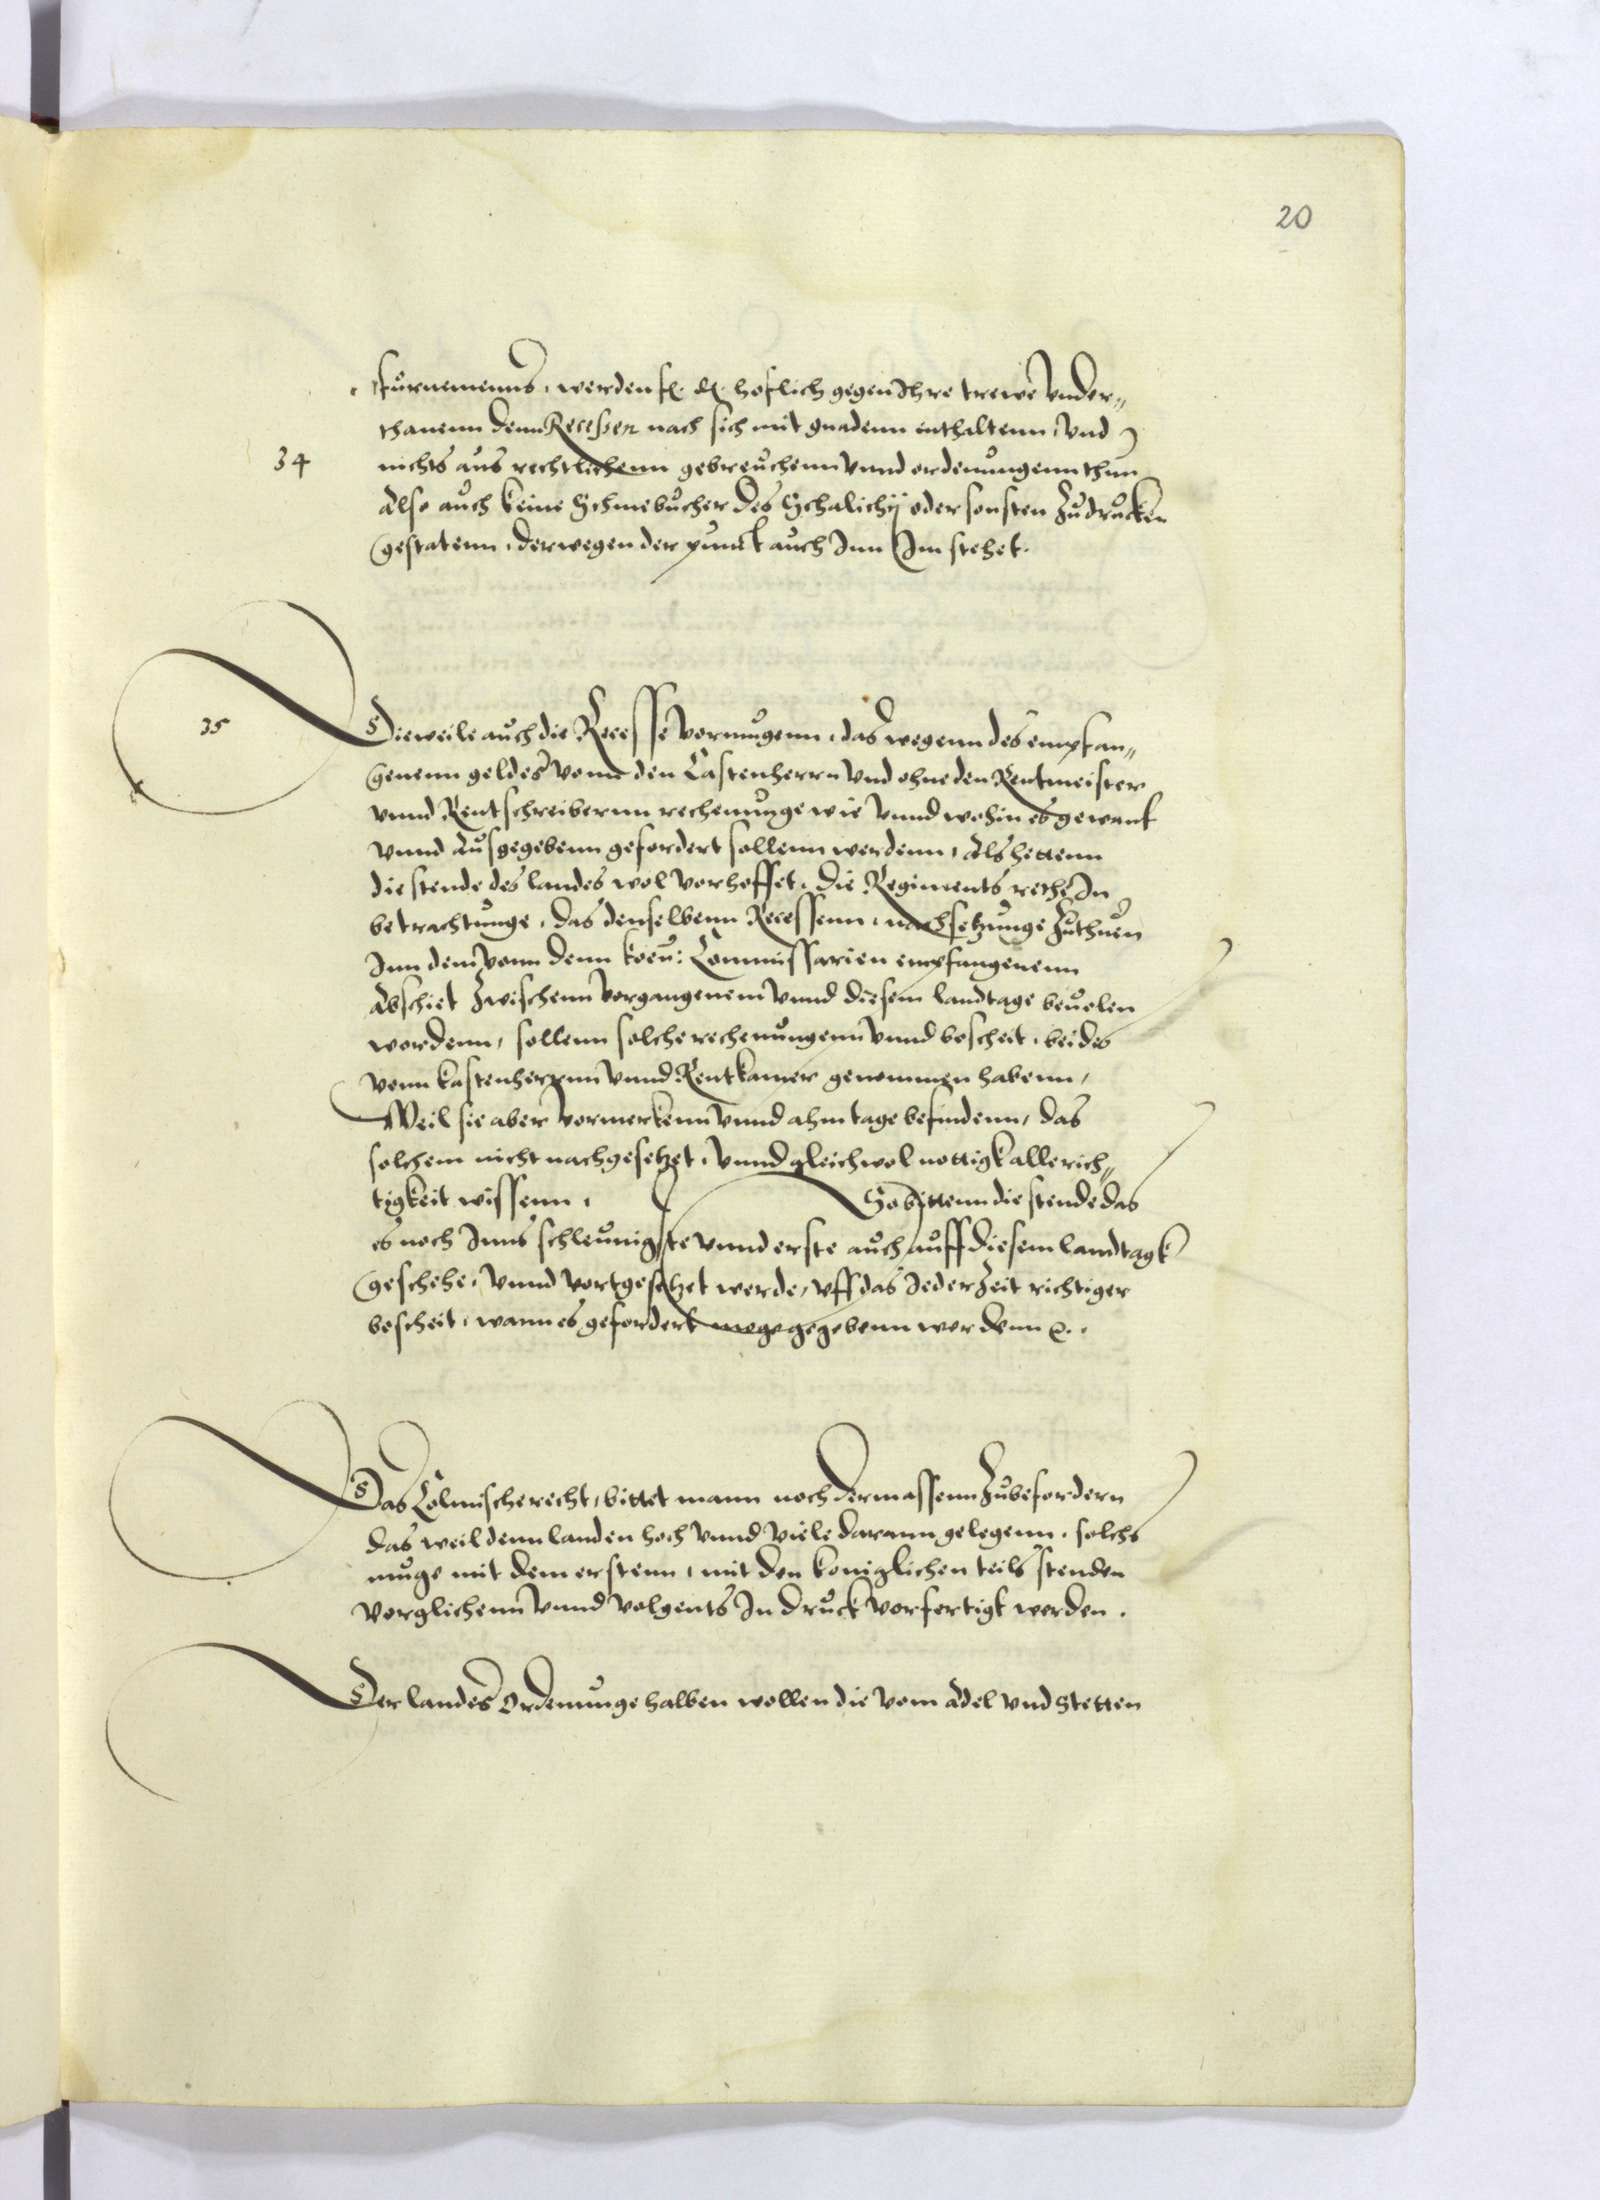 20
furnemenns, werden f. d. hoflich gegen Ihre trewe Under„
thanenn denn Recessen nach sich mit gnadenn enthaltenn, Und
34
nichts aus rechtlichenn gebreuchenn Unnd ordenungenn thun
Also auch keine Schmebucher des Schalichij oder sonsten Zudrucken
gestatenn, derwegen der punct auch Inn Im stehet.
35
Dieweile auch die Recesse Vormugenn, das wegenn des empfan„
genenn geldes vonn den Castenherrn Und ohne den Rentmeister
Unnd Rentschreibernn rechenunge wie Unnd wohin es gewant
Unnd Ausgegebenn gefordert sollenn werdenn, Als hettenn
die stende des landes wol vorhoffet, die Regiments rethe In
betrachtunge, das denselbenn Recessenn, nachsetzunge Zuthuen
Inn dem Vonn denn koen: Commissarien empfangenenn
Abschiet Zwischenn Vorgangenem Unnd diesem landtage beuolen
wordenn, sollenn solche rechenungenn Unnd bescheit, beides
Vonn kastenherrnn Unnd Rentkamer genommen habenn,
Weil sie aber Vormerkenn Unnd ahm tage befindenn, das
solchem nicht nachgesetzet, Unnd gleichwol nottigk alle rich„
tigkeit wissenn, So bittenn die stende das
es noch Inns schleunigste Unnd erste auch auff diesem landtagk
geschehe, Unnd Vortgesetzet werde, Uff das Ieder Zeit richtiger
bescheit, wann es gefordert moge gegebenn werdenn
Das Colmische recht, bittet mann nochdermassenn Zubefordern
das weil denn landen hoch Unnd Viele darann gelegenn, solchs
muge mit dem erstenn, mit den koniglichen teils stenden
Vorglichenn Unnd Volgents In druck Vorfertigt werden.
Der landes Ordenunge halben wollen die Vom Adel Und Stetten